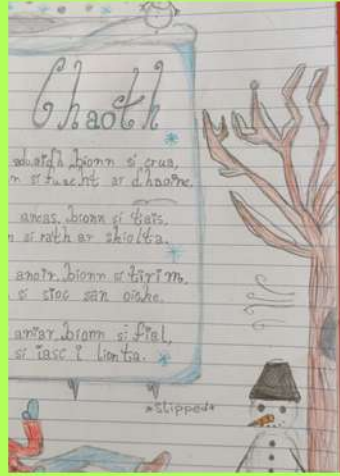 Chaoth
aduaidh bíonn sí crua,
n sí fuacht ar dhaoine.
aneas, bíonn sí tais,
n sí rath ar shíolta.
anoir bíonn sí tirim,
sí sioc san oíche.
aniar, bíonn sí fial,
sí iasc i líonta.
*slipped*